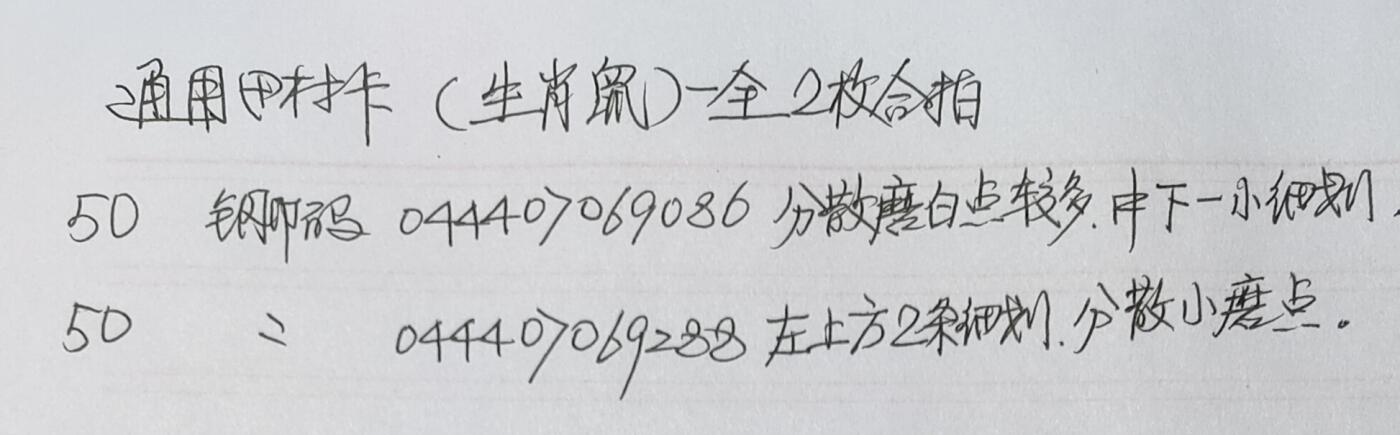 通用田村卡（生肖鼠）一全2枚合拍
50 钢印码 044407069086 分散磨白点较多.中下一小细划.
50 〃 044407069288 左上方2条细划.分散小磨点。